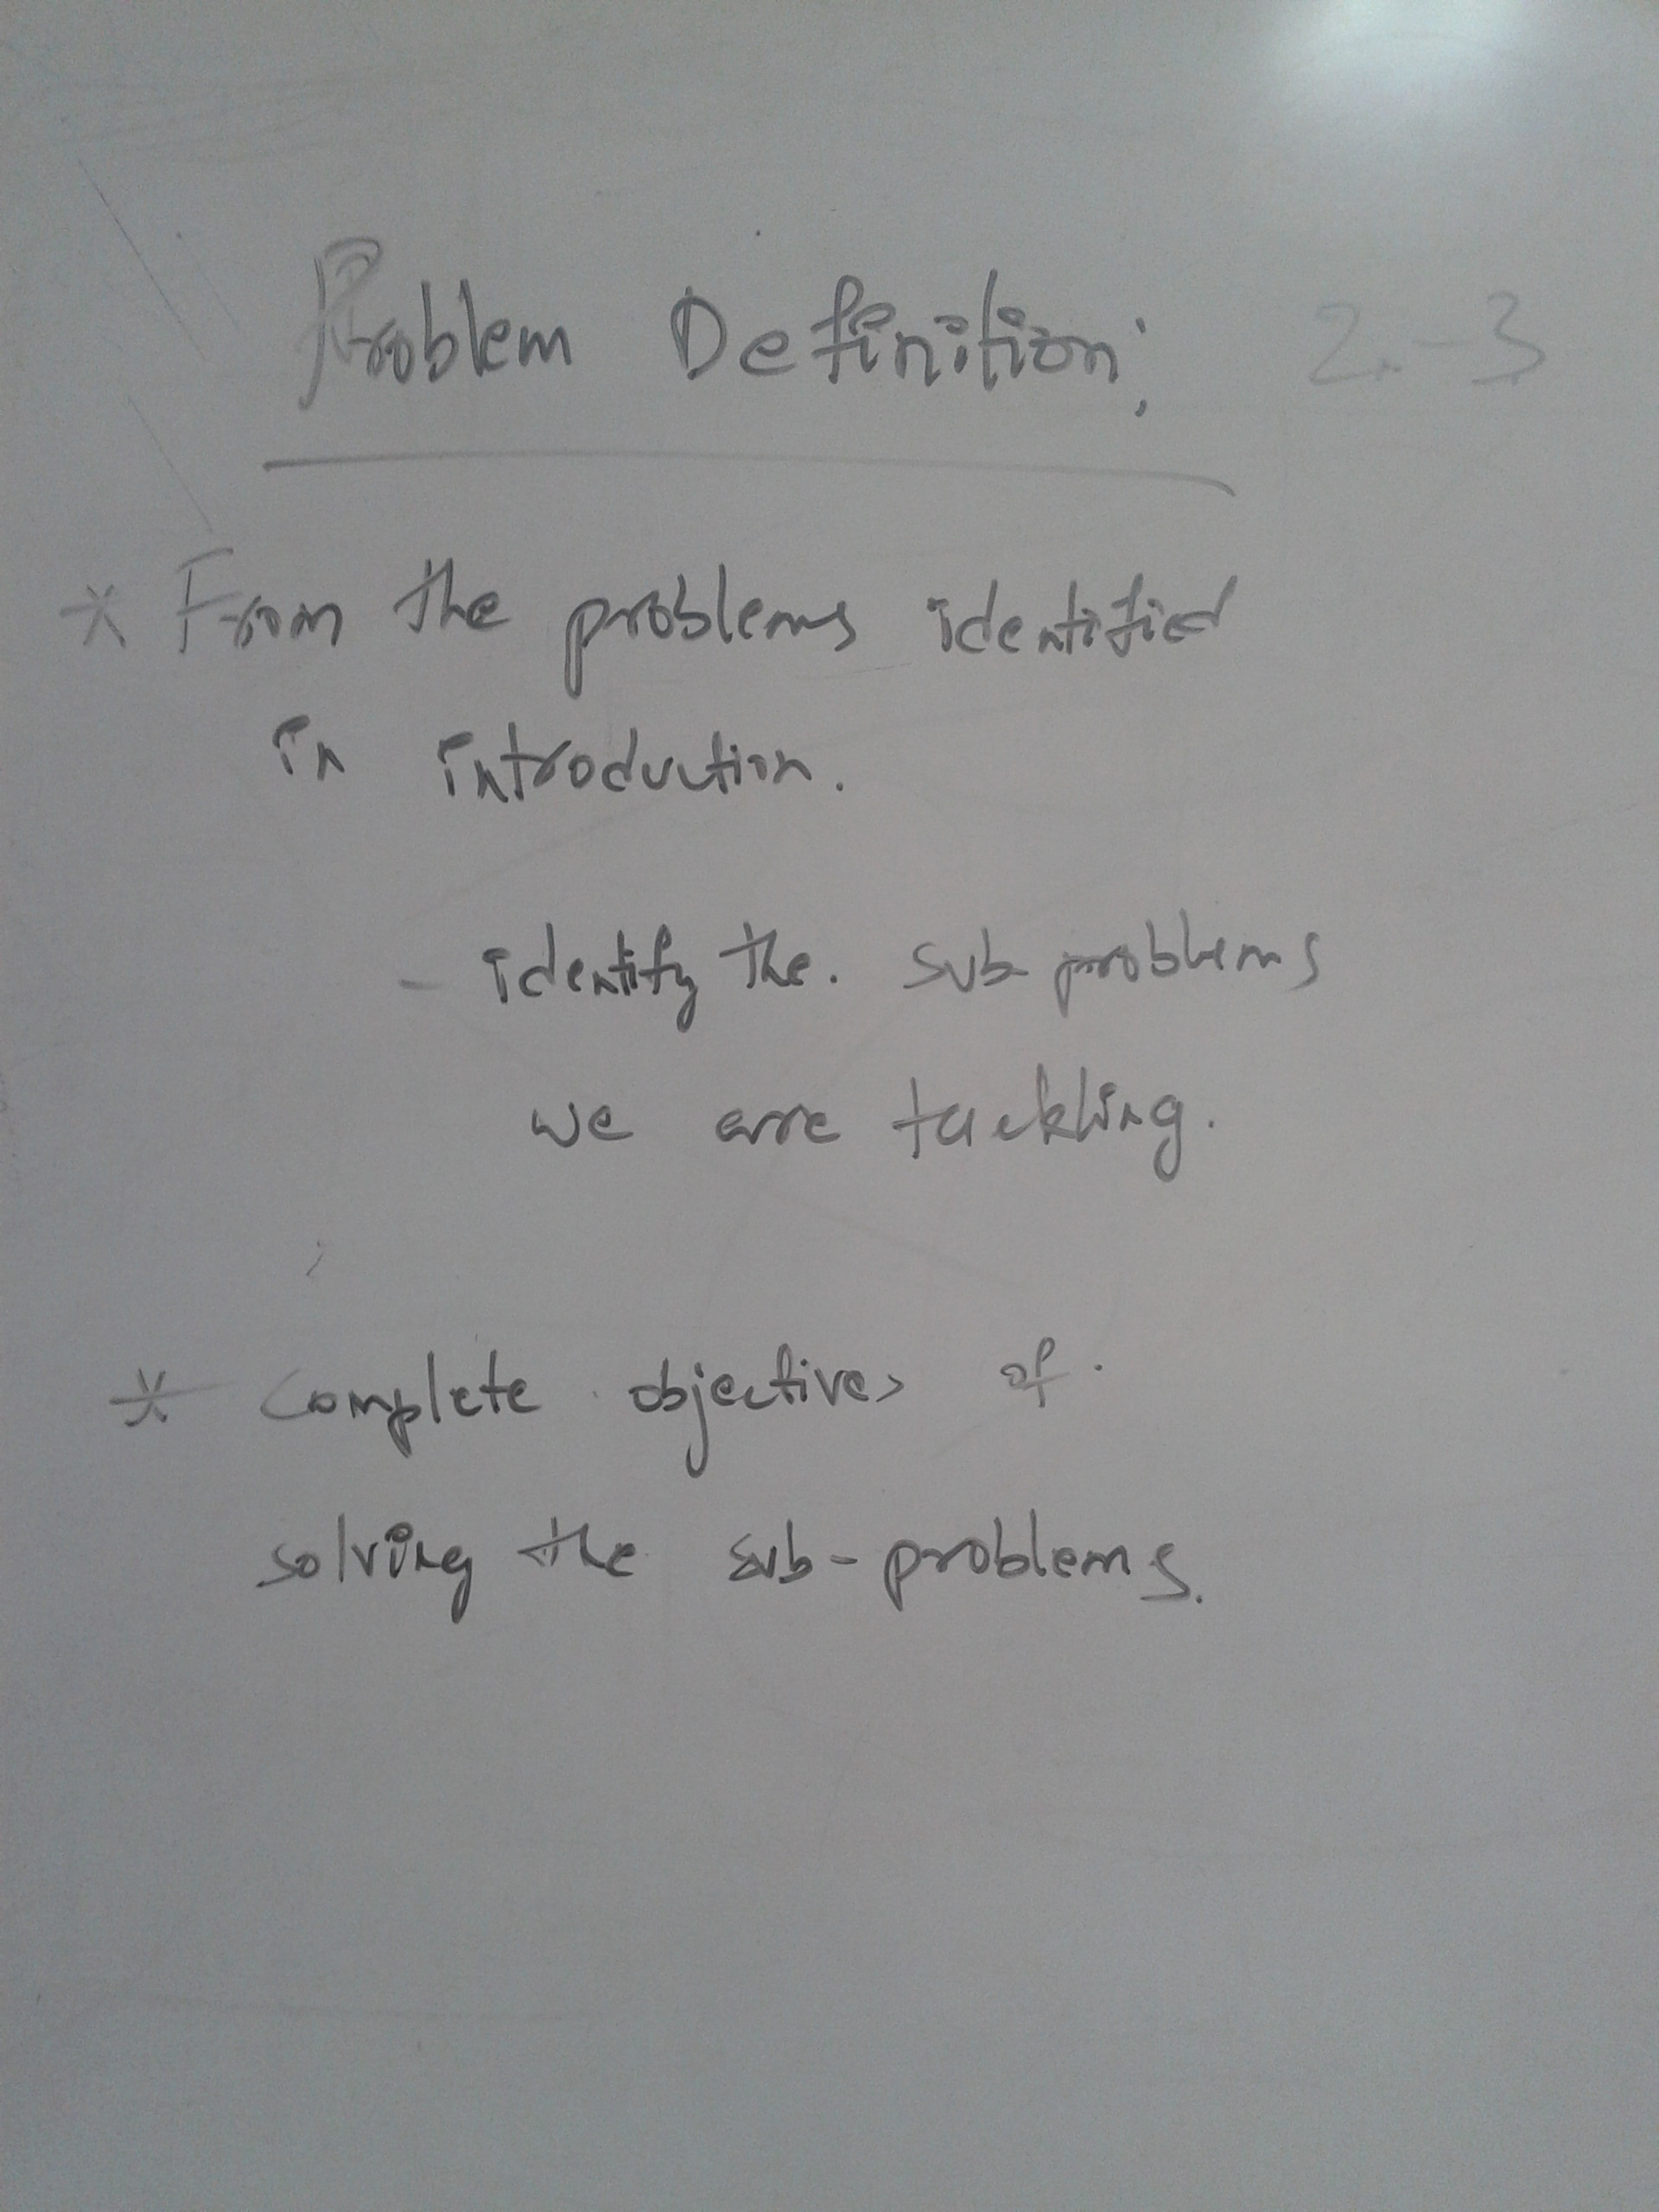 Problem Definition: 2.-3
* From the problems identified
in introduction.
- identify the. sub-problems
we are tackling.
* Complete objectives of.
solving the sub-problems.